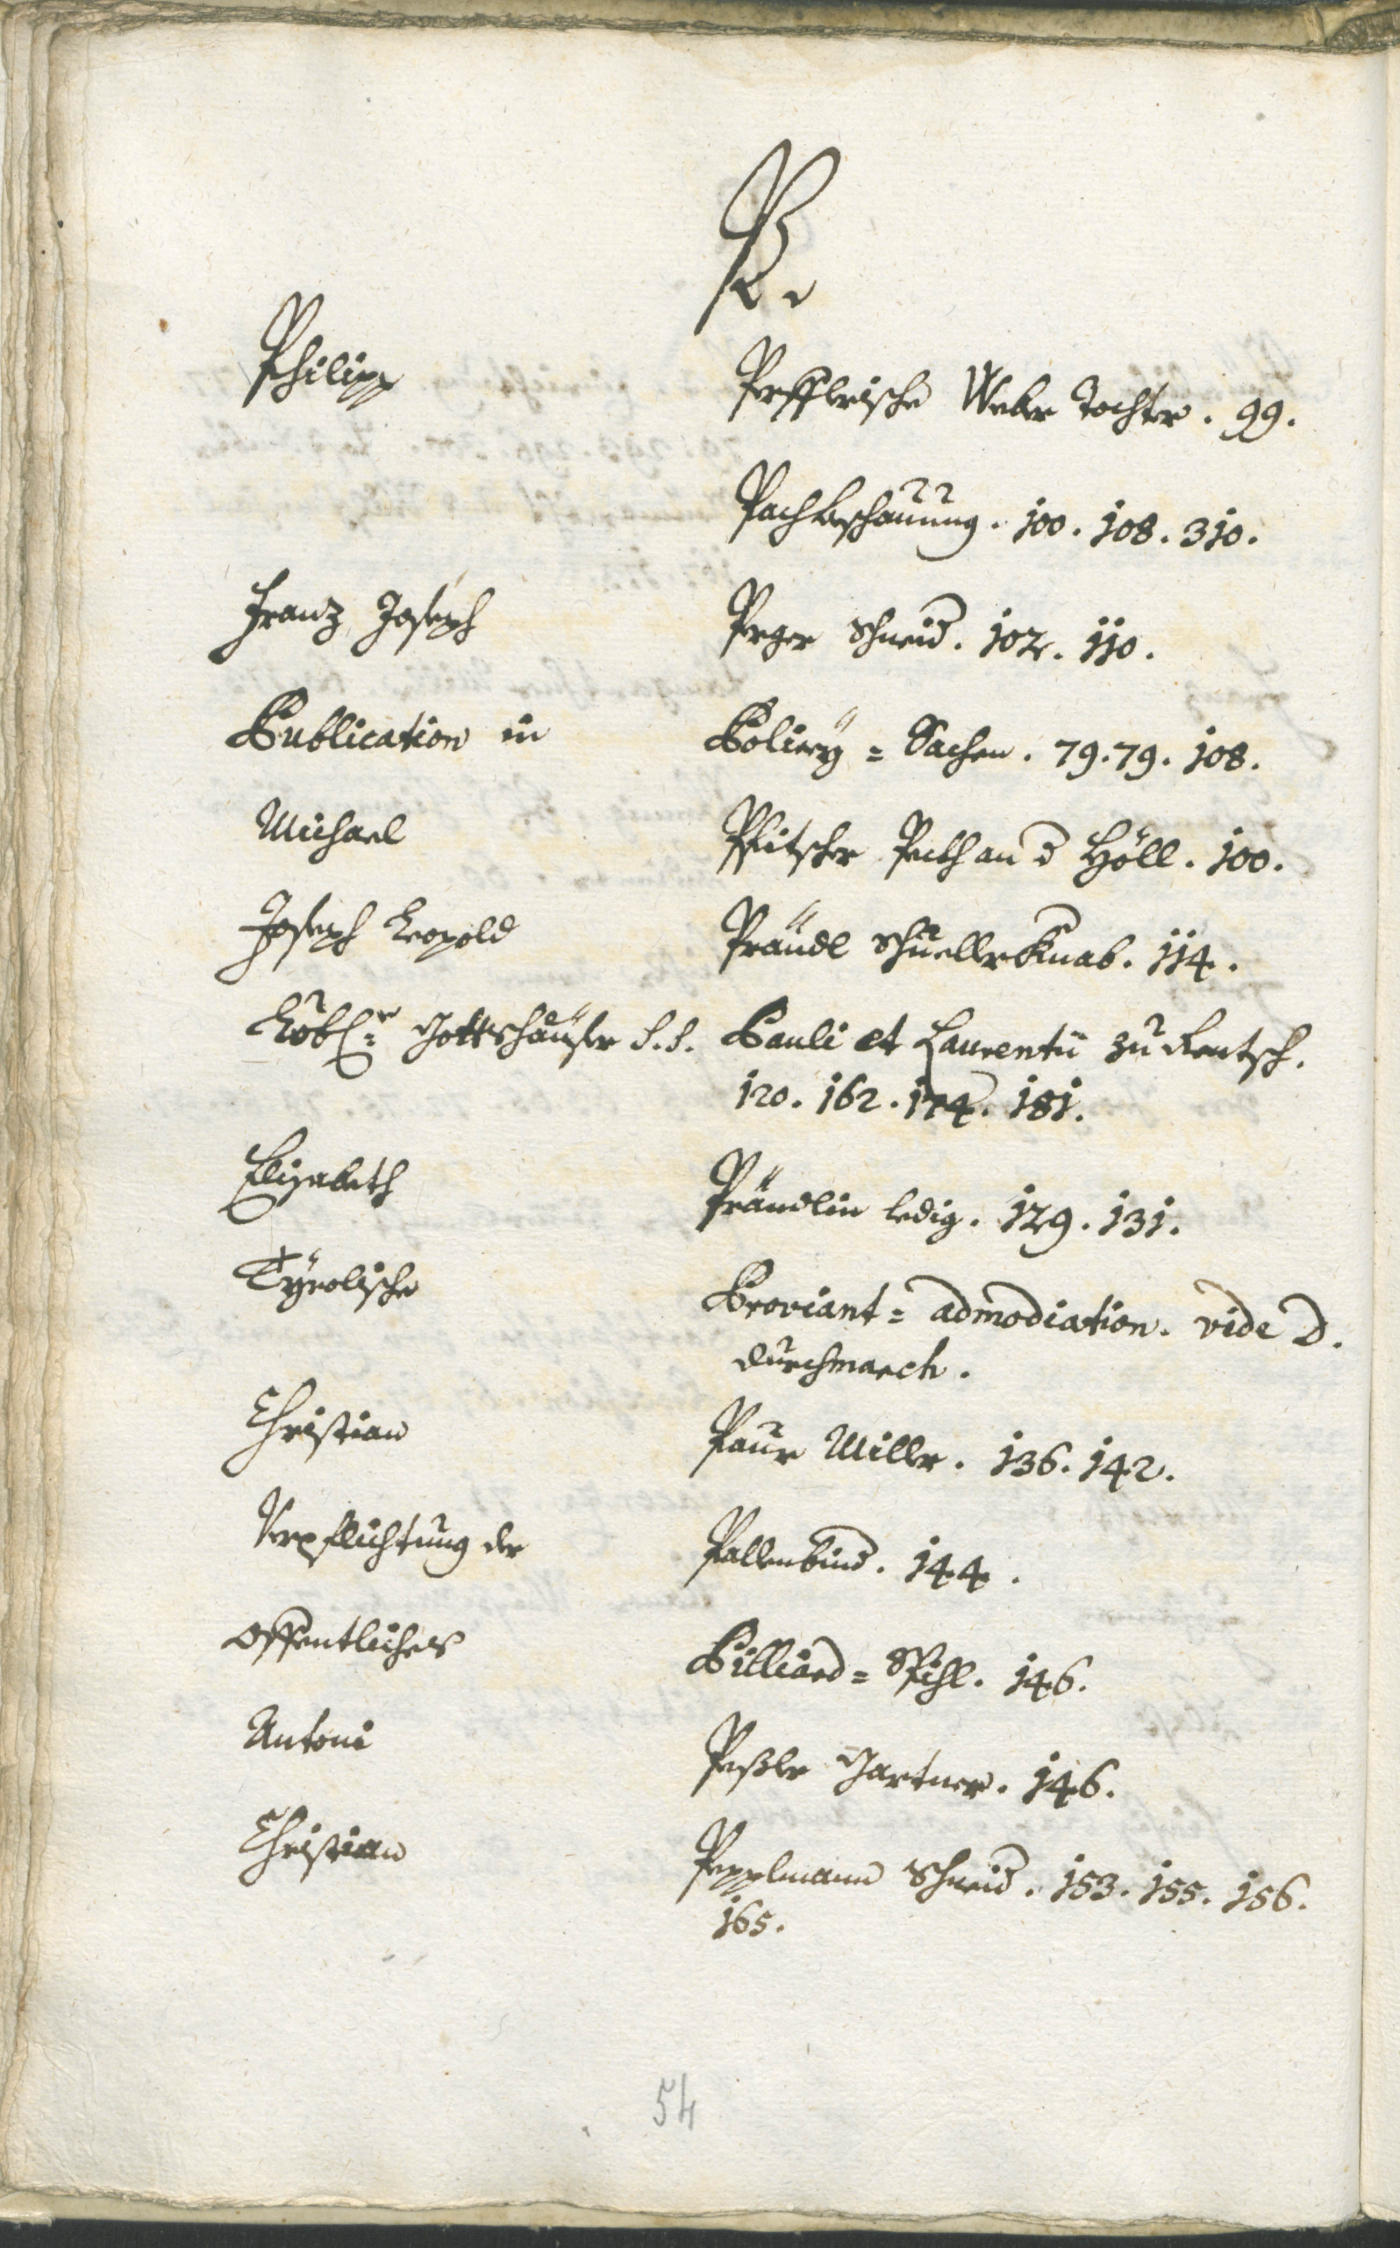 P.
Philipp Pfefflrische Weber Tochter. 99.
Pachbschauung. 100. 108. 310.
Franz Joseph Perger Schneid. 102. 110.
Publication in Policey = Sachen. 79. 79. 108.
Michael Pfitscher Peckh an d Höll. 100.
Joseph Leopold Präudl Schuellr Knab. 114.
Löbl: Gottshäuser S. S. Pauli et Laurentii zu Rentsch.
120. 162. 174. 181.
Elisabeth Prändlin ledig. 129. 131.
Tÿrolische Proviant = admodiation. vide D.
durchmarch.
Christian Paur Miller. 136. 142.
Verpflichtung der Pallenbind. 144.
Offentliches Billiard = Spihl. 146.
Antoni Peßler Gartner. 146.
Christian Pepplmann Schneid. 153. 155. 156.
165.
54